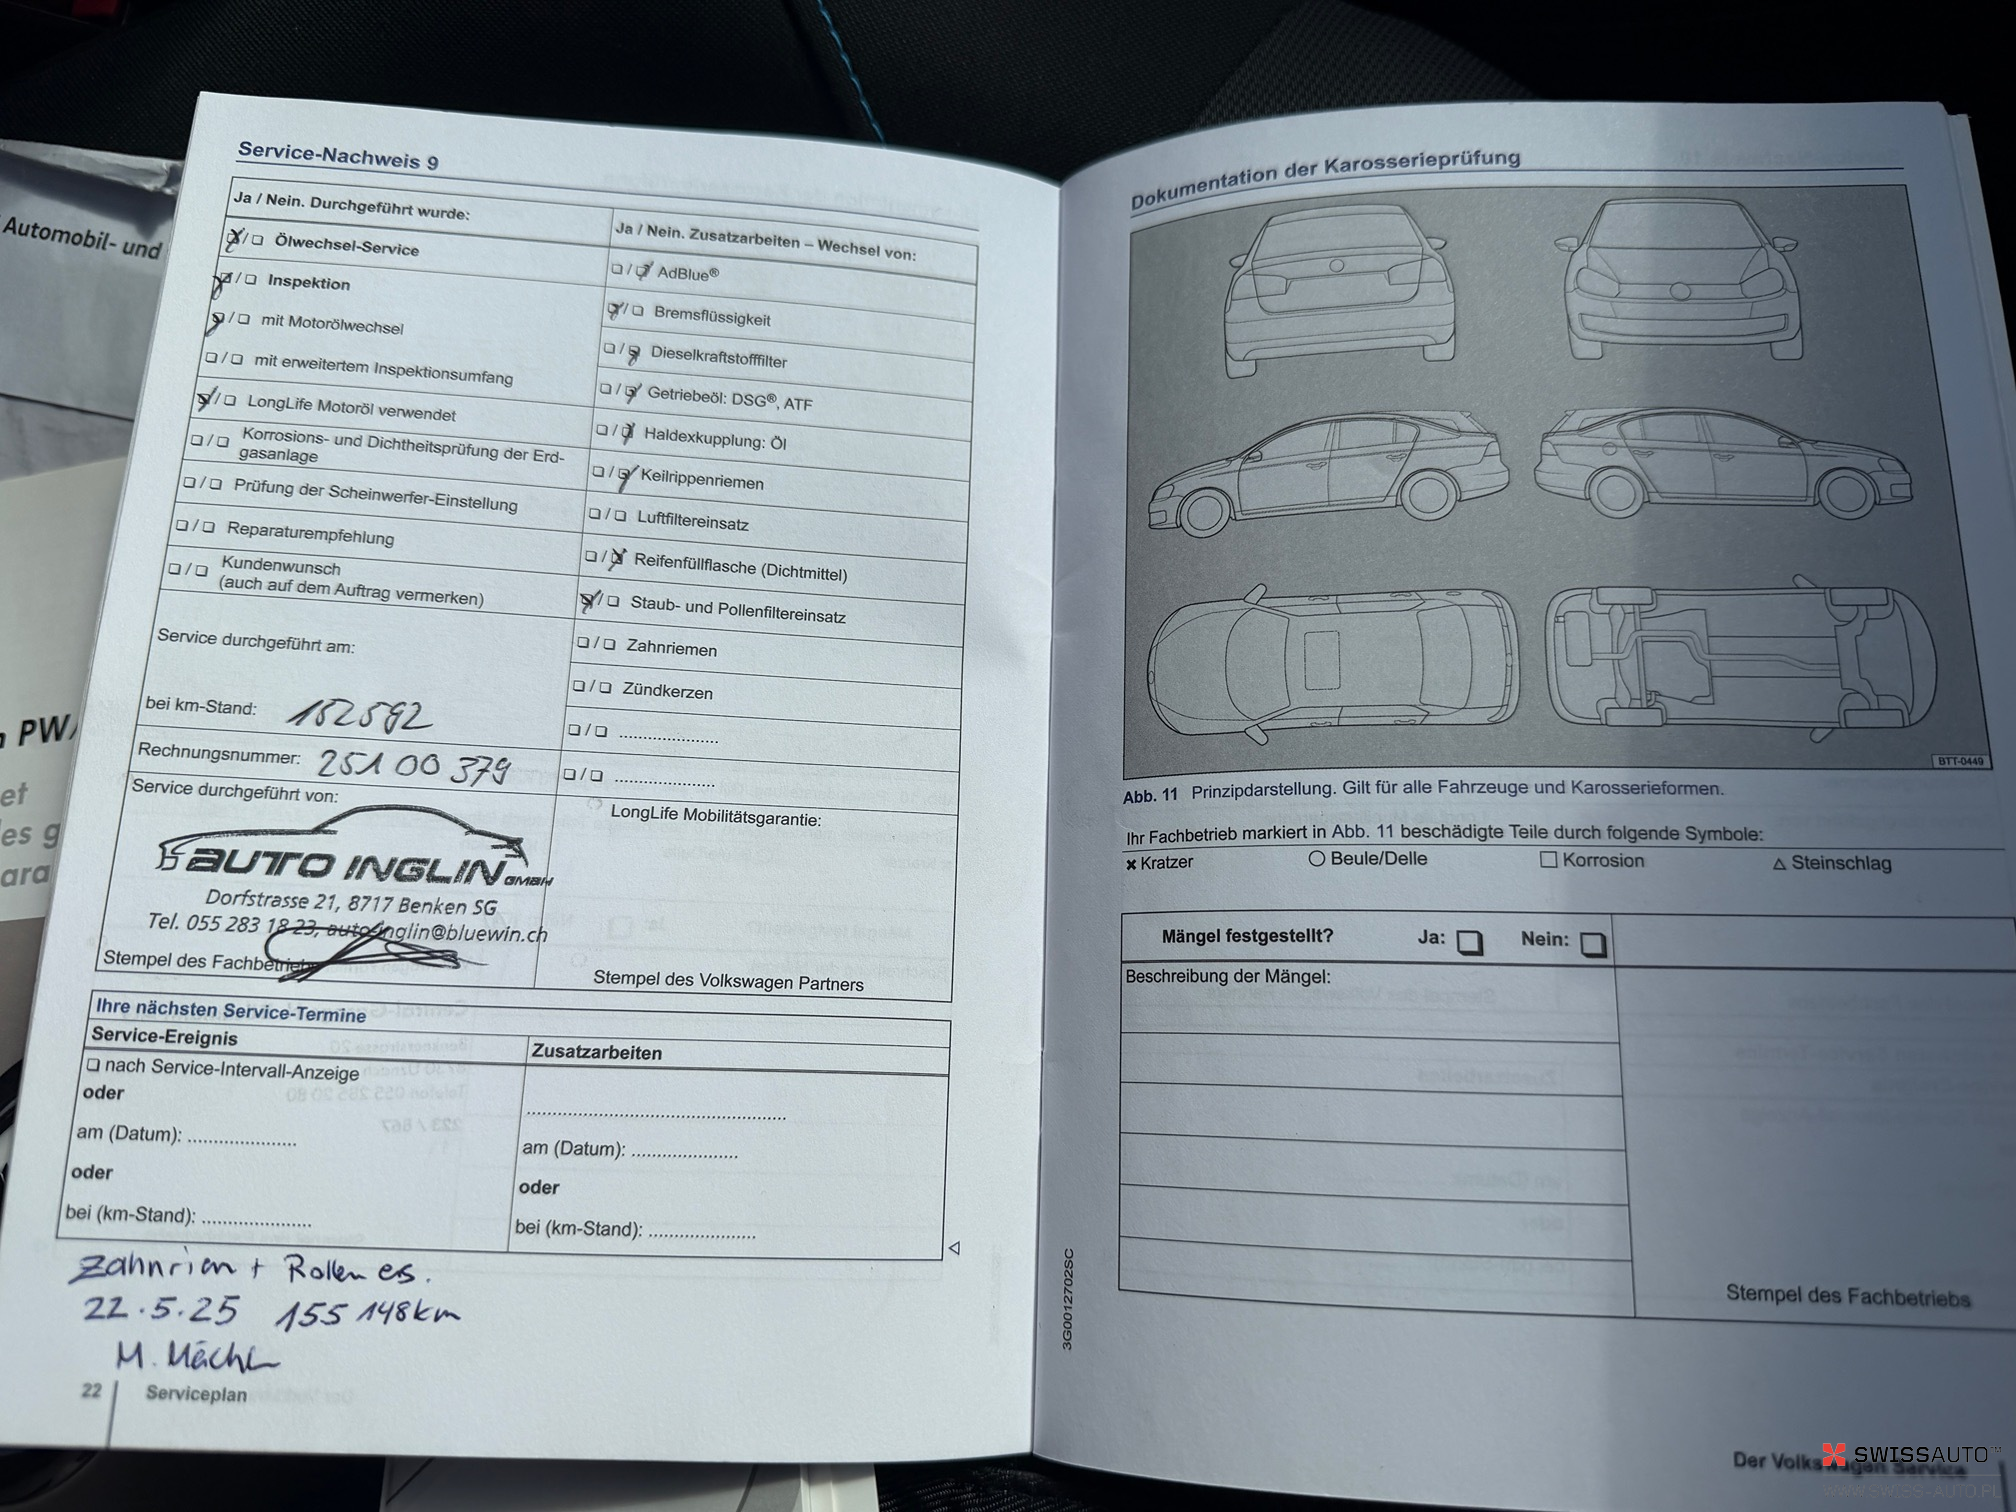 Automobil- und
n PW/
et
les g
ara
Service-Nachweis 9
Ja / Nein. Durchgeführt wurde:
❑/❑ Ölwechsel-Service
❑/❑ Inspektion
❑/❑ mit Motorölwechsel
❑/❑ mit erweitertem Inspektionsumfang
❑/❑ LongLife Motoröl verwendet
❑/❑ Korrosions- und Dichtheitsprüfung der Erd-
gasanlage
❑/❑ Prüfung der Scheinwerfer-Einstellung
❑/❑ Reparaturempfehlung
❑/❑ Kundenwunsch
(auch auf dem Auftrag vermerken)
Service durchgeführt am:
bei km-Stand: 152592
Rechnungsnummer: 251 00 379
Service durchgeführt von:
AUTO INGLIN GMBH
Dorfstrasse 21, 8717 Benken SG
Tel. 055 283 18 23, autoinglin@bluewin.ch
Stempel des Fachbetriebs
Ja / Nein. Zusatzarbeiten – Wechsel von:
❑/❑ AdBlue®
❑/❑ Bremsflüssigkeit
❑/❑ Dieselkraftstofffilter
❑/❑ Getriebeöl: DSG®, ATF
❑/❑ Haldexkupplung: Öl
❑/❑ Keilrippenriemen
❑/❑ Luftfiltereinsatz
❑/❑ Reifenfüllflasche (Dichtmittel)
❑/❑ Staub- und Pollenfiltereinsatz
❑/❑ Zahnriemen
❑/❑ Zündkerzen
❑/❑ ....................
❑/❑ ....................
LongLife Mobilitätsgarantie:
Stempel des Volkswagen Partners
Ihre nächsten Service-Termine
Service-Ereignis
❑ nach Service-Intervall-Anzeige
oder
am (Datum): .....................
oder
bei (km-Stand): .....................
Zusatzarbeiten
..................................................
am (Datum): .....................
oder
bei (km-Stand): .....................
Zahnriem + Rollen ers.
22.5.25 155 148km
M. Mächl
22 Serviceplan
Dokumentation der Karosserieprüfung
BTT-0449
Abb. 11 Prinzipdarstellung. Gilt für alle Fahrzeuge und Karosserieformen.
Ihr Fachbetrieb markiert in Abb. 11 beschädigte Teile durch folgende Symbole:
× Kratzer ○ Beule/Delle □ Korrosion △ Steinschlag
Mängel festgestellt? Ja: ❑ Nein: ❑
Beschreibung der Mängel:
Stempel des Fachbetriebs
3G0012702SC
Der Volkswagen Service
SWISSAUTO™
WWW.SWISS-AUTO.PL